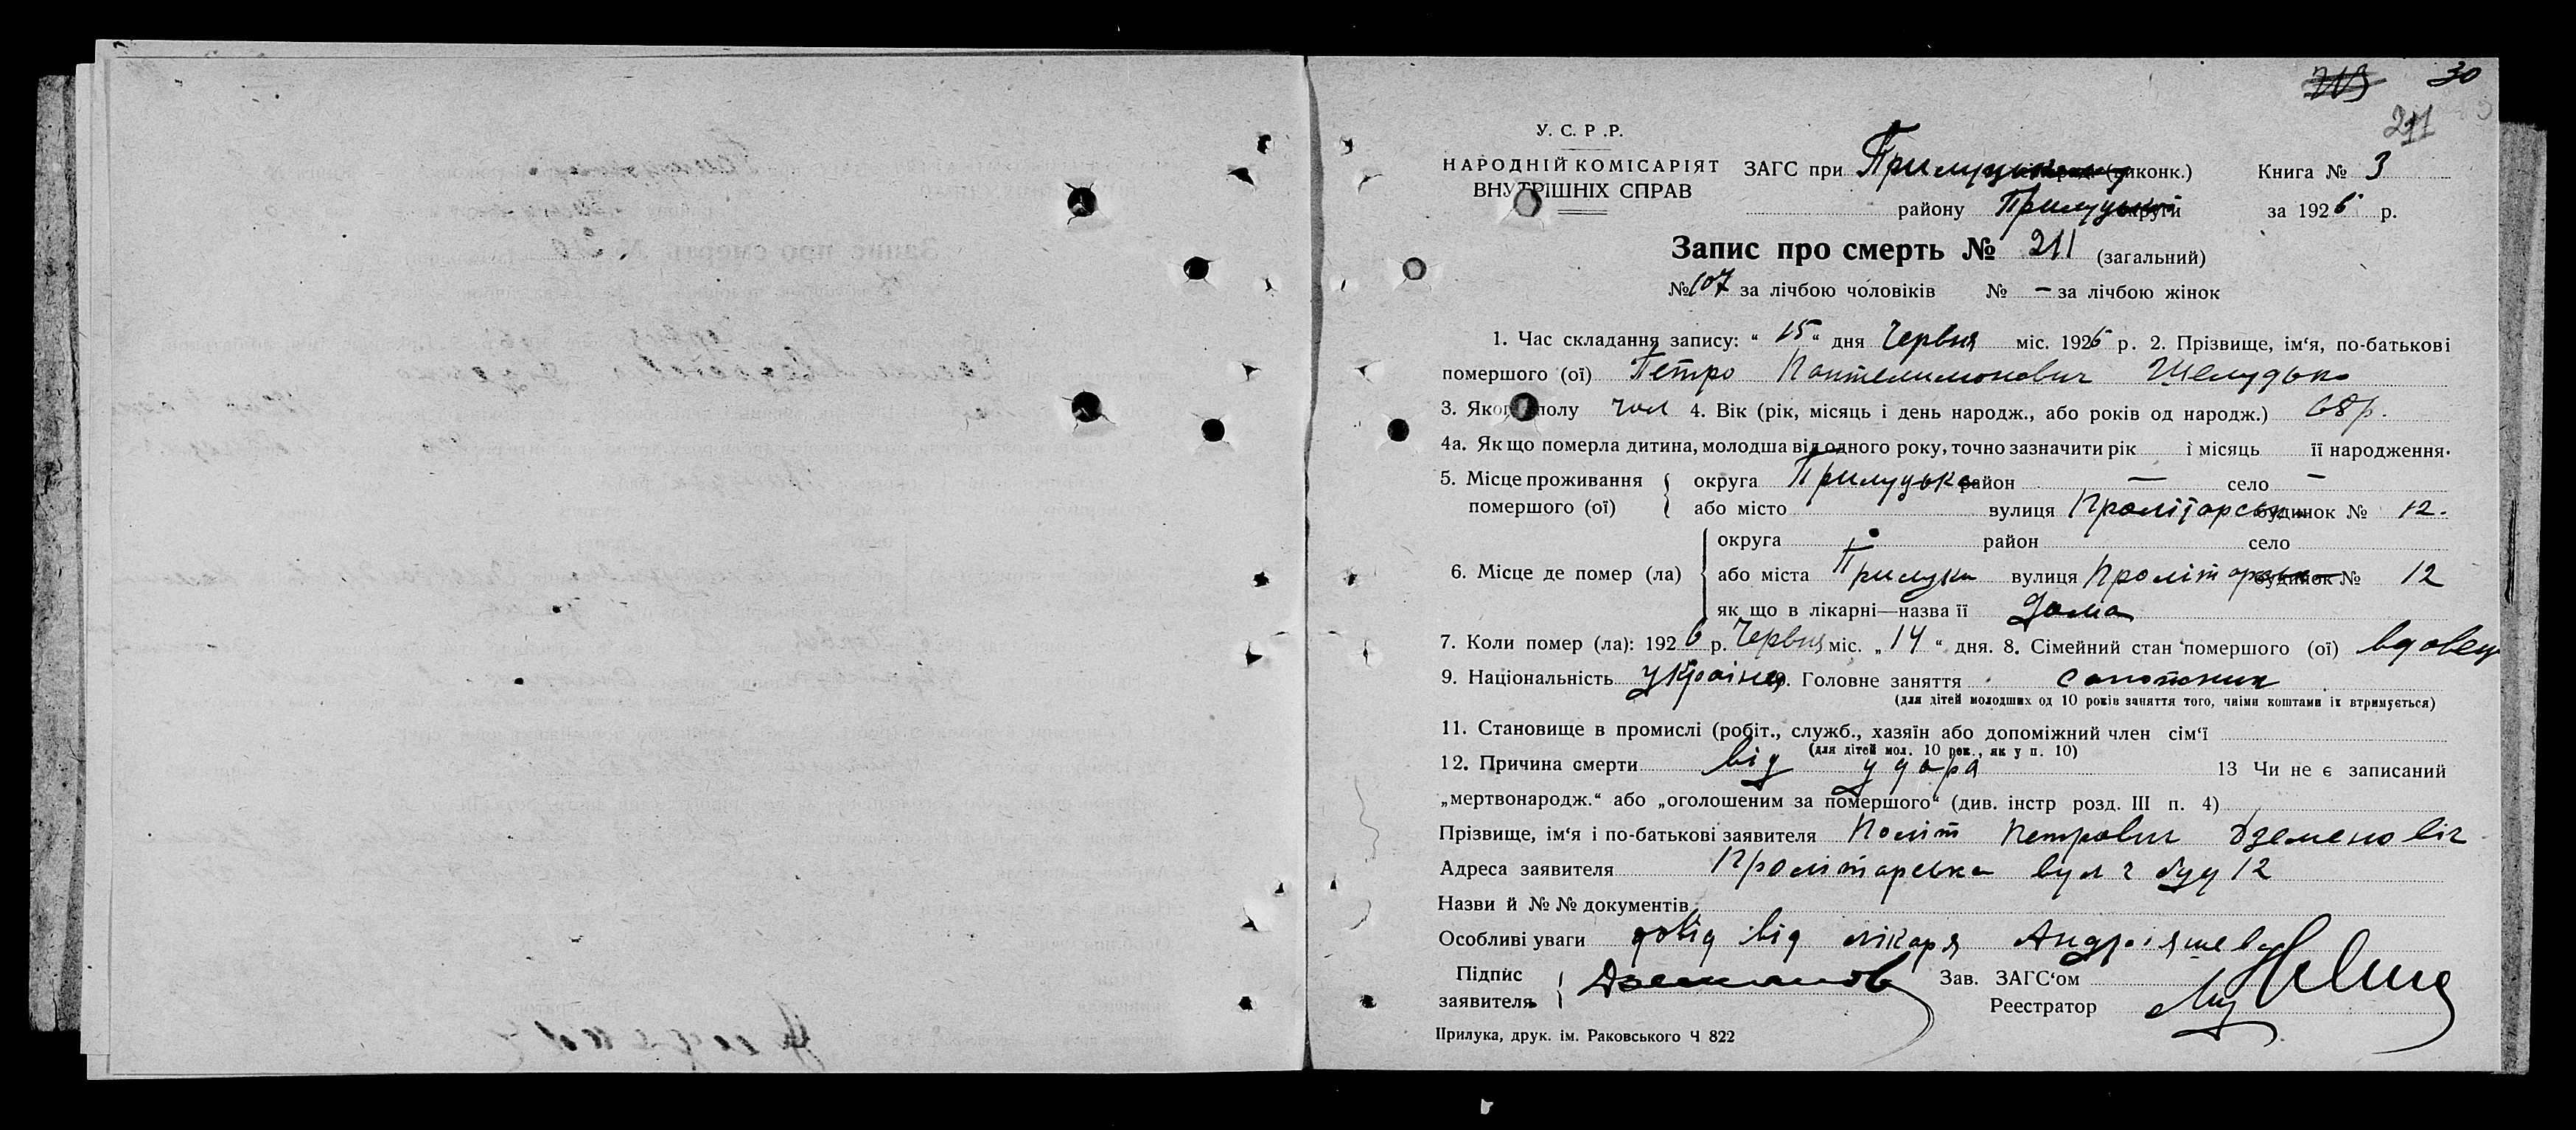 30
211
У. С. Р. Р.
НАРОДНІЙ КОМІСАРІЯТ ВНУТРІШНІХ СПРАВ
ЗАГС при Прилуцькому (виконк.) Книга № 3
району Прилуцької округи за 1926 р.
Запис про смерть № 211 (загальний)
№ 107 за лічбою чоловіків № — за лічбою жінок
1. Час складання запису: " 15 " дня Червня міс. 1926 р. 2. Прізвище, ім'я, по-батькові
помершого (ої) Петро Пантелимонович Шелудько
3. Якого полу чол 4. Вік (рік, місяць і день народж., або років од народж.) 68 р.
4а. Як що померла дитина, молодша від одного року, точно зазначити рік і місяць її народження.
5. Місце проживання помершого (ої) { округа Прилуцька район — село —
або місто вулиця Пролітарська будинок № 12.
6. Місце де помер (ла) { округа район село
або міста Прилуки вулиця Пролітарська будинок № 12
як що в лікарні—назва її Дома
7. Коли помер (ла): 1926 р. Червня міс. „ 14 " дня. 8. Сімейний стан помершого (ої) вдовець
9. Національність україне 10. Головне заняття сапожник
(для дітей молодших од 10 років заняття того, чиїми коштами їх втримується)
11. Становище в промислі (робіт., служб., хазяїн або допоміжний член сім'ї
(для дітей мол. 10 рок., як у п. 10)
12. Причина смерти від удара 13 Чи не є записаний
„мертвонародж." або „оголошеним за помершого" (див. інстр розд. III п. 4)
Прізвище, ім'я і по-батькові заявителя Політ Петрович
Адреса заявителя Пролітарська вул ч буд 12
Назви й № № документів
Особливі уваги довід від лікаря Андріяшева
Підпис заявителя {
Зав. ЗАГС'ом
Реестратор
Прилука, друк. ім. Раковського Ч 822